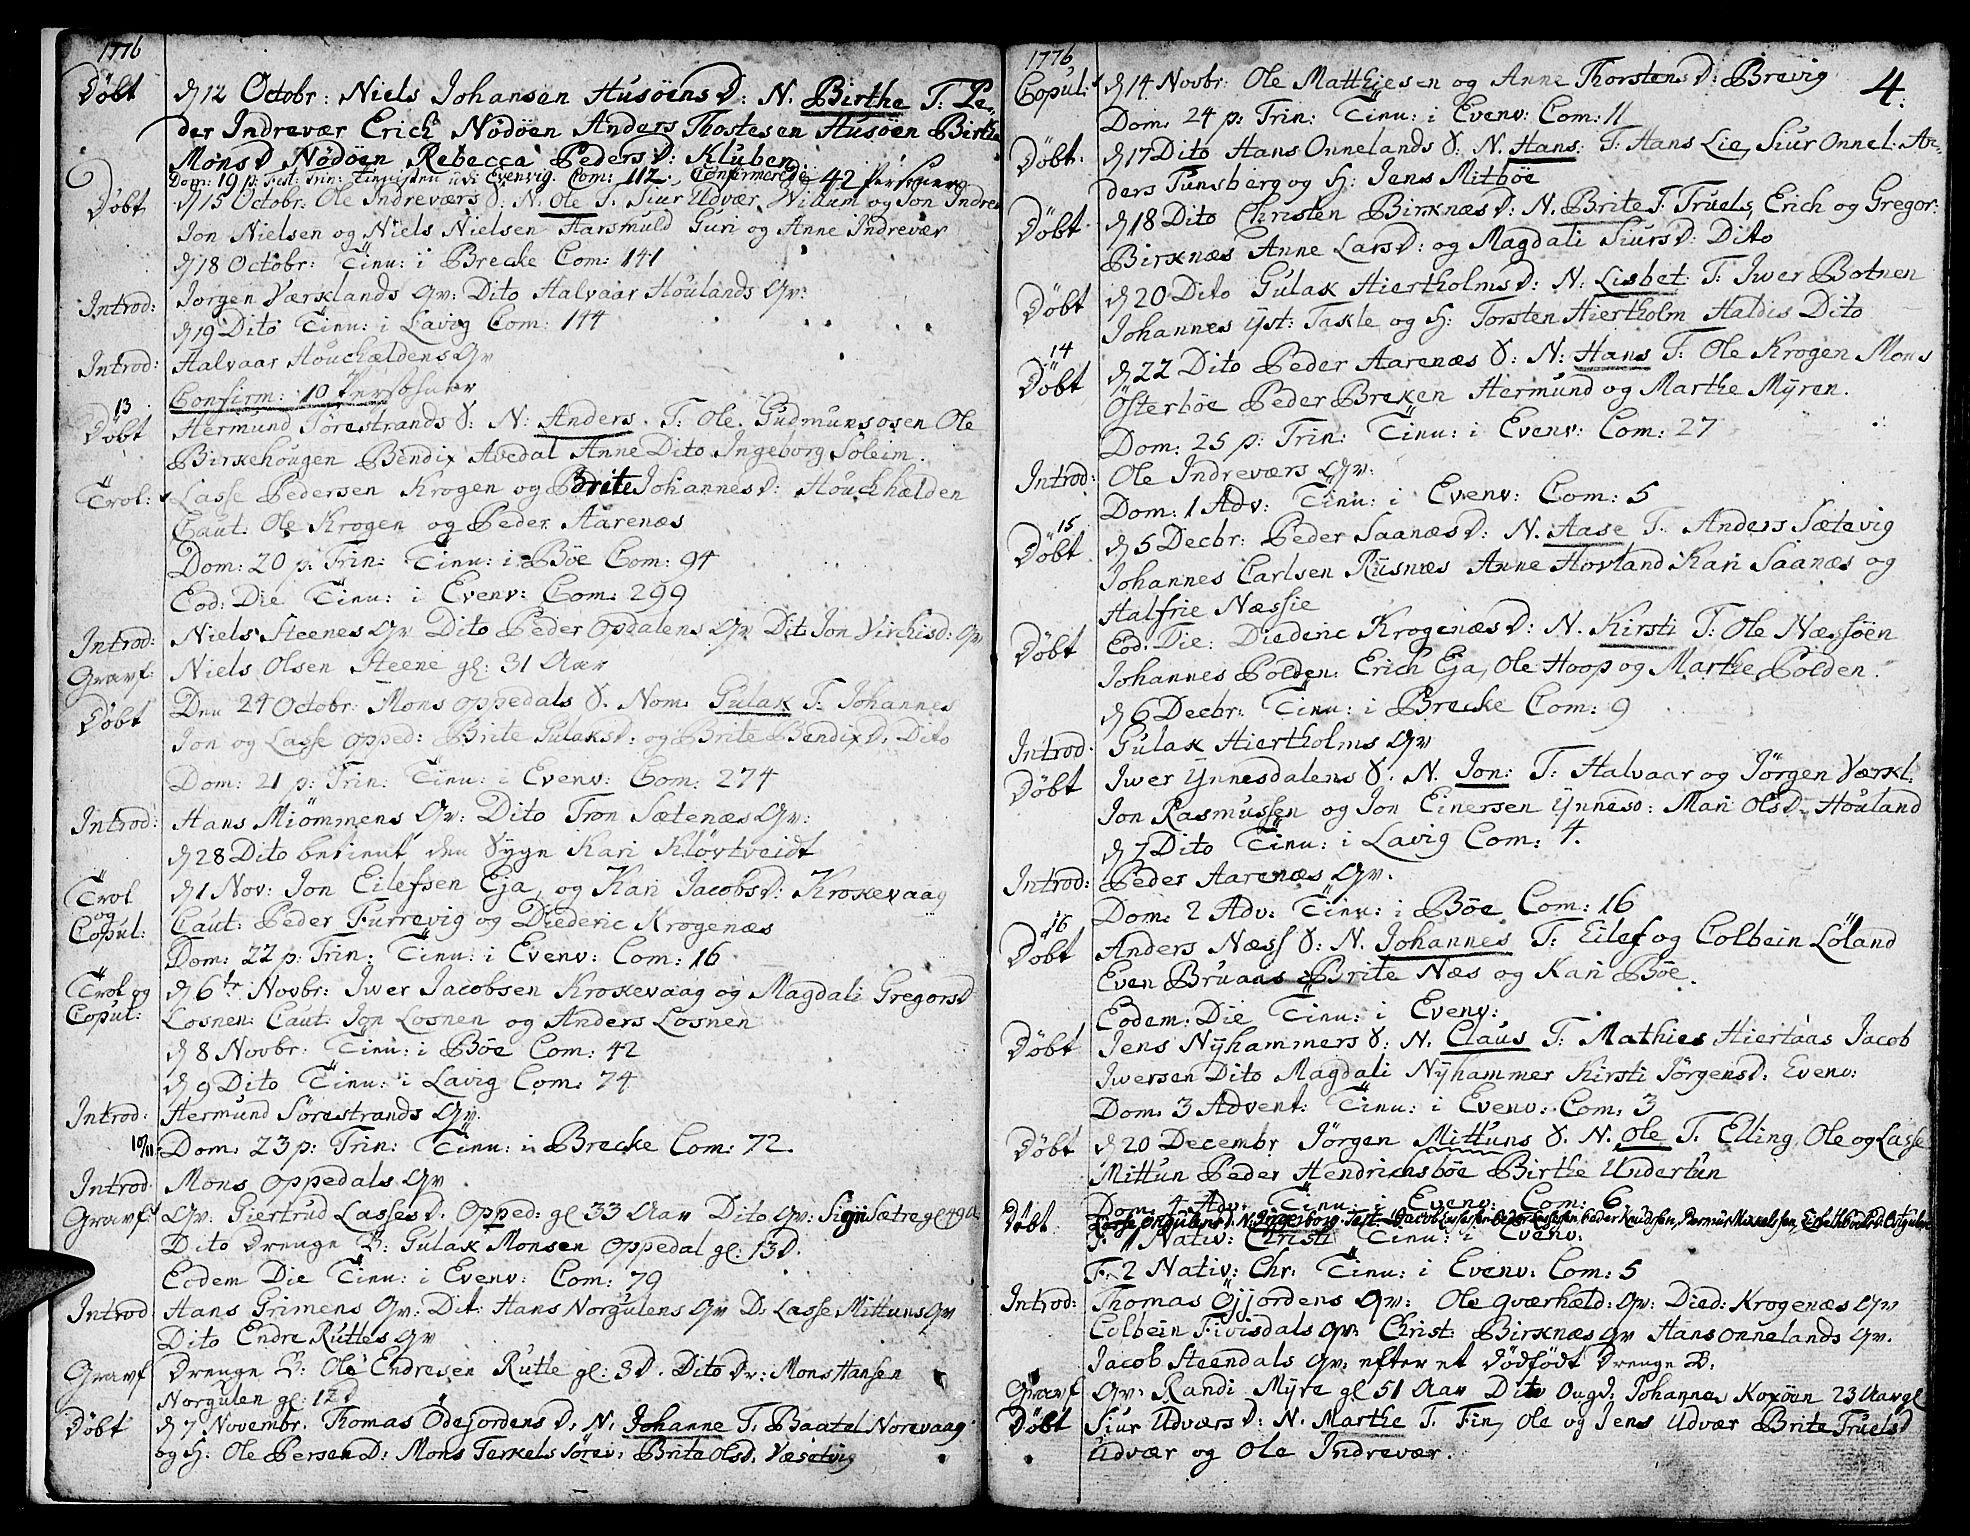 1776
Döbt d 12 Octobr: Niels Johansen Husöens D: N. Birthe T: Pe-
der Indrevær Erich Nödöen Anders Thostesen Husöen Birthe
MonsD Nödöen Rebecca PedersD: Kluben.
Dom: 19 p: Fest: Trin: Evenvig Com: 112. Confirmerede 42 Personer
Döbt d 15 Octobr: Ole Indreværs S: N. Ole T. Siur Udvær, Willum og Jon Indre
Jon Nielsen og Niels Nielsen Aarsmuld Guri og Anne Indrevær
d 18 Octobr: Tinu: i Brecke Com: 141
Introd: Jorgen Værklands Qv: Dito Halvaar Houlands Qv:
d 19 Dito Tinu: i Lavig Com: 144
Introd: Halvaar Houchældens Qv
Confirm: 10 Personer
13
Döbt Hermund Sörestrands S: N: Anders. T: Ole. Gudmunsosen Ole
Birkehougen Bendix Avedal Anne Dito Ingeborg Soleim.
Trol: Lasse Pedersen Krogen og Brite JohannesD: Houchhælden
Caut: Ole Krogen og Peder Aarenæs
Dom: 20 p: Trin: Tinu: i Böe Com: 94
Eod: Die Tinu: i Evenv: Com: 299
Introd: Niels Steenes Qv Dito Peder Opdalens Qv Dito Jon Virchisd: Qv
Gravf: Niels Olsen Steene gl: 31 Aar
Döbt Den 24 Octobr: Mons oppedals S. Nom. Gulak T: Johannes
Jon og Lasse opped: Brite GulaksD: og Brite BendixD: Dito
Dom: 21 p: Trin: Tinu: i Evenv: Com: 274
Introd: Hans Miömmens Qv: Dito Tron Sætenæs Qv:
d 28 Dito betient den Syge Kari Klövtveidt
Trol og Copul: d 1 Nov: Jon Eilefsen Eja, og Kari JacobsD: Krokevaag
Caut: Peder Furrevig og Diederic Krogenæs
Dom: 22 p: Trin: Tinu: i Evenv: Com: 16
Trol og Copul: d 6te Novbr: Iwer Jacobsen Krokevaag og Magdali GregorsD
Losnen: Caut: Jon Losnen og Anders Losnen
d 8 Novbr: Tinu: i Böe Com: 42
d 9 Dito Tinu: i Lavig Com: 74
Introd: Hermund Sörestrands Qv:
10/11 Dom: 23 p: Trin: Tinu: i Brecke Com: 72.
Introd Mons oppedals Qv
Gravf: Qv: Giertrud LassesD: Opped: gl 33 Aar Dito Qv: Signi Sætre gl 49 A
Dito Drenge B: Gulak Monsen oppedal gl: 13 D.
Eodem Die Tinu: i Evenv: Com: 79
Introd Hans Grimens Qv: Dit: Hans Norgulens Qv D: Lasse Mittuns Qv
Dito Endre Rutles Qv
Gravf Drenge B: Ole Endresen Rutle gl: 3 D. Dito Dr: Mons Hansen
Norgulen gl: 12 D
Döbt d 7 Novembr: Thomas Ödejordens D: N. Johanne T. Baatel Norevaag
og H: Ole PersenD: Mons Terkels sören: Brite OlsD. Væsetvig
1776 4.
Copul: d 14 Novbr: Ole Matthiesen og Anne ThorstensD: Brevig
Dom: 24 p: Trin: Tinu: i Evenv: Com: 11
Döbt: d 17 Dito Hans Onnelands S: N. Hans: T: Hans Lie, Siur Onnel: An-
ders Tunsberg og H: Jens Mitböe
Döbt d 18 Dito Christen Birknæs D: N. Brite T: Truels, Erich og Gregor:
Birknæs Anne LarsD: og Magdali SiursD: Dito
Döbt d 20 Dito Gulak Hiertholms D: N: Lisbet T: Iwer Botnen
Johannes yst: Takle og H: Torsten Hiertholm Haldis Dito
14
Döbt d 22 Dito Peder Aarenæs S: N: Hans T: Ole Krogen Mons
Österböe Peder Breken Hermund og Marthe Myren.
Dom: 25 p: Trin: Tinu: i Evenv: Com: 27
Introd: Ole Indreværs Qv:
Dom: 1 Adv: Tinu: i Evenv: Com: 5
15
Döbt d 5 Decbr: Peder Saanæs D: N. Aase T: Anders Sætevig
Johannes Carlsen Riisnæs Anne Hovland Kari Saanæs og
Halfrie Næssie
Döbt Eod: Die: Diederic Krogenæs D: N. Kirsti T: Ole Næssöen
Johannes Polden: Erich Eja, Ole Hoop og Marthe Polden.
d 6 Decbr: Tinu: i Brecke Com: 9
Introd: Gulak Hiertholms Qv
Döbt Iwer Ynnesdalens S. N. Jon: T: Halvaar og Jörgen Værkl:
Jon Rasmussen og Jon Einersen Ynnesd: Mari OlsD. Houland
d 7 Dito Tinu: i Lavig Com: 4.
Introd: Peder Aarenæs Qv.
Dom: 2 Adv: Tinu: i Böe Com: 16
16
Döbt Anders Næss S: N. Johannes T: Eilef og Colbein Löland
Even Bruaas Brite Næs og Kari Böe.
Eodem: Die Tinu: i Evenv:
Döbt Jens Nÿhammers S: N. Claus T: Mathies Hiertaas Jacob
Iwersen Dito Magdali Nÿhammer Kirsti JörgensD: Evenv:
Dom: 3 Advent: Tinu: i Evenv: Com: 3
Döbt d 20 Decembr Jörgen Mittuns S. N. Ole T. Elling, Ole og Lasse
Mittun Peder Hendrichsböe Birthe Undertun
Dom: 4 Adv: Tinu: i Evenv: Com: 6
Döbt N. Ingeborg Test:
F: 1 Nativ: Christi Tinu: i Evenv:
F: 2 Nativ: Chr: Tinu: i Evenv: Com: 5
Introd: Thomas Öjjordens Qv: Ole Qværhæld: Qv: Died: Krogenæs Qv
Colbein Fivisdals Qv: Christ: Birknæs Qv Hans onnelands Qv.
Jacob Steendals Qv: efter et Dödfödt Drenge B:
Gravf Qv: Randi Myre gl 51 Aar Dito Ougd: Johanna Koxöen 23 Aar gl
Döbt Siur Udværs D: N. Marthe T. Fin, Ole og Jens Udvær Brite TruelsD
Udvær og Ole Indrevær.